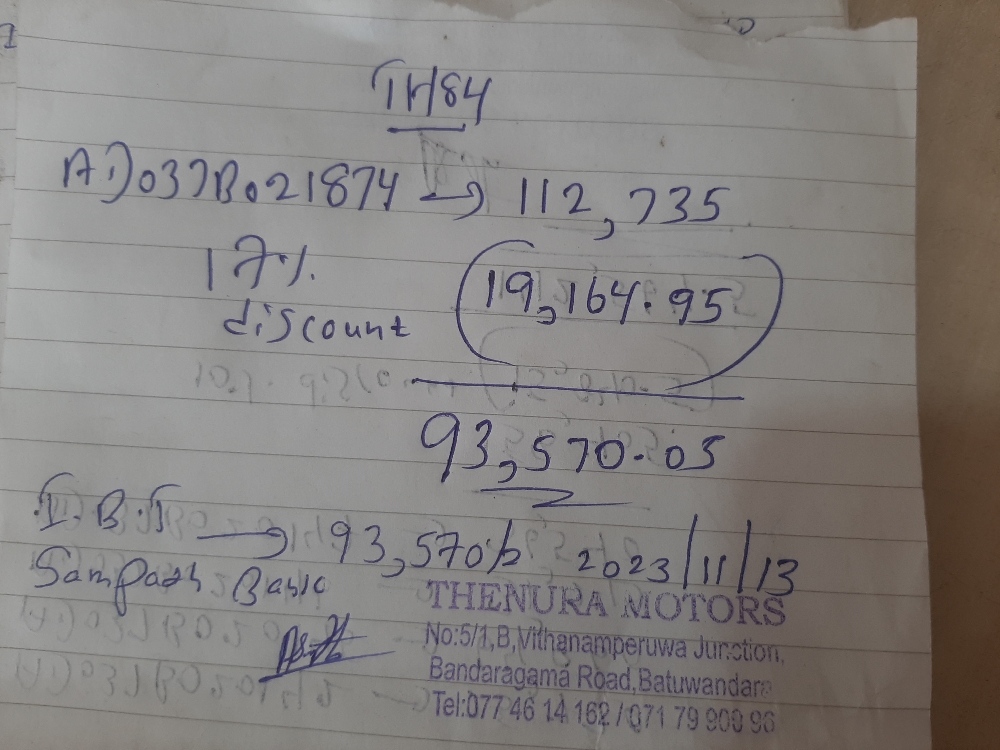 TH84
AD037B021874 → 112,735
17%
19,164.95
discount
93,570.05
I.B.T → 93,570/= 2023/11/13
Sampath Bank
THENURA MOTORS
No:5/1,B,Vithanamperuwa Junction,
Bandaragama Road,Batuwandara
Tel:077 46 14 162 / 071 79 900 96